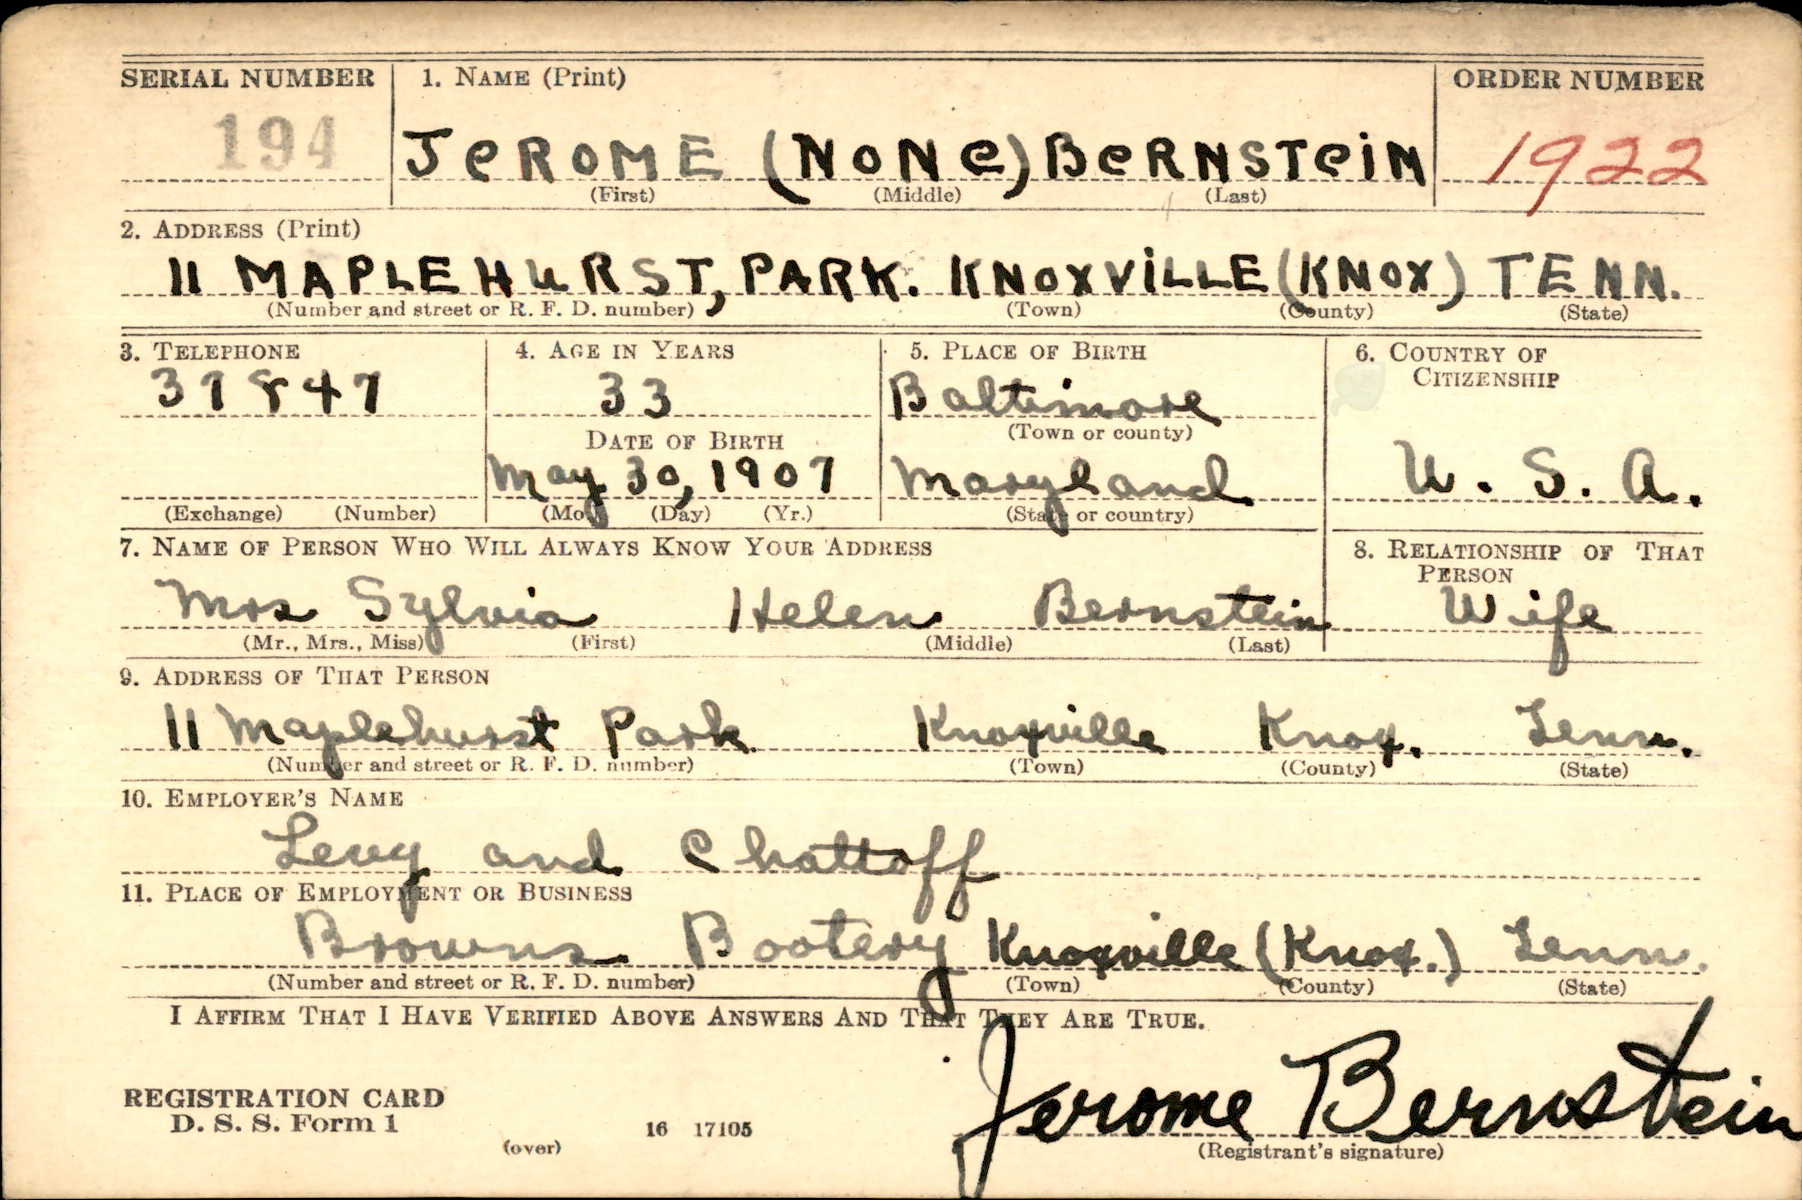 SERIAL NUMBER 1. NAME (Print) ORDER NUMBER
194 JEROME (NONE) BERNSTEIN 1922
(First) (Middle) (Last)
2. ADDRESS (Print)
11 MAPLEHURST, PARK. KNOXVILLE (KNOX) TENN.
(Number and street or R. F. D. number) (Town) (County) (State)
3. TELEPHONE 4. AGE IN YEARS 5. PLACE OF BIRTH 6. COUNTRY OF CITIZENSHIP
37847 33 Baltimore
DATE OF BIRTH (Town or county)
May 30, 1907 Maryland U. S. A.
(Exchange) (Number) (Mo.) (Day) (Yr.) (State or country)
7. NAME OF PERSON WHO WILL ALWAYS KNOW YOUR ADDRESS 8. RELATIONSHIP OF THAT PERSON
Mrs Sylvia Helen Bernstein Wife
(Mr., Mrs., Miss) (First) (Middle) (Last)
9. ADDRESS OF THAT PERSON
11 Maplehurst Park Knoxville Knox. Tenn.
(Number and street or R. F. D. number) (Town) (County) (State)
10. EMPLOYER'S NAME
Levy and Chattoff
11. PLACE OF EMPLOYMENT OR BUSINESS
Browns Bootery Knoxville (Knox.) Tenn.
(Number and street or R. F. D. number) (Town) (County) (State)
I AFFIRM THAT I HAVE VERIFIED ABOVE ANSWERS AND THAT THEY ARE TRUE.
REGISTRATION CARD
D. S. S. Form 1 Jerome Bernstein
(over) 16 17105 (Registrant's signature)